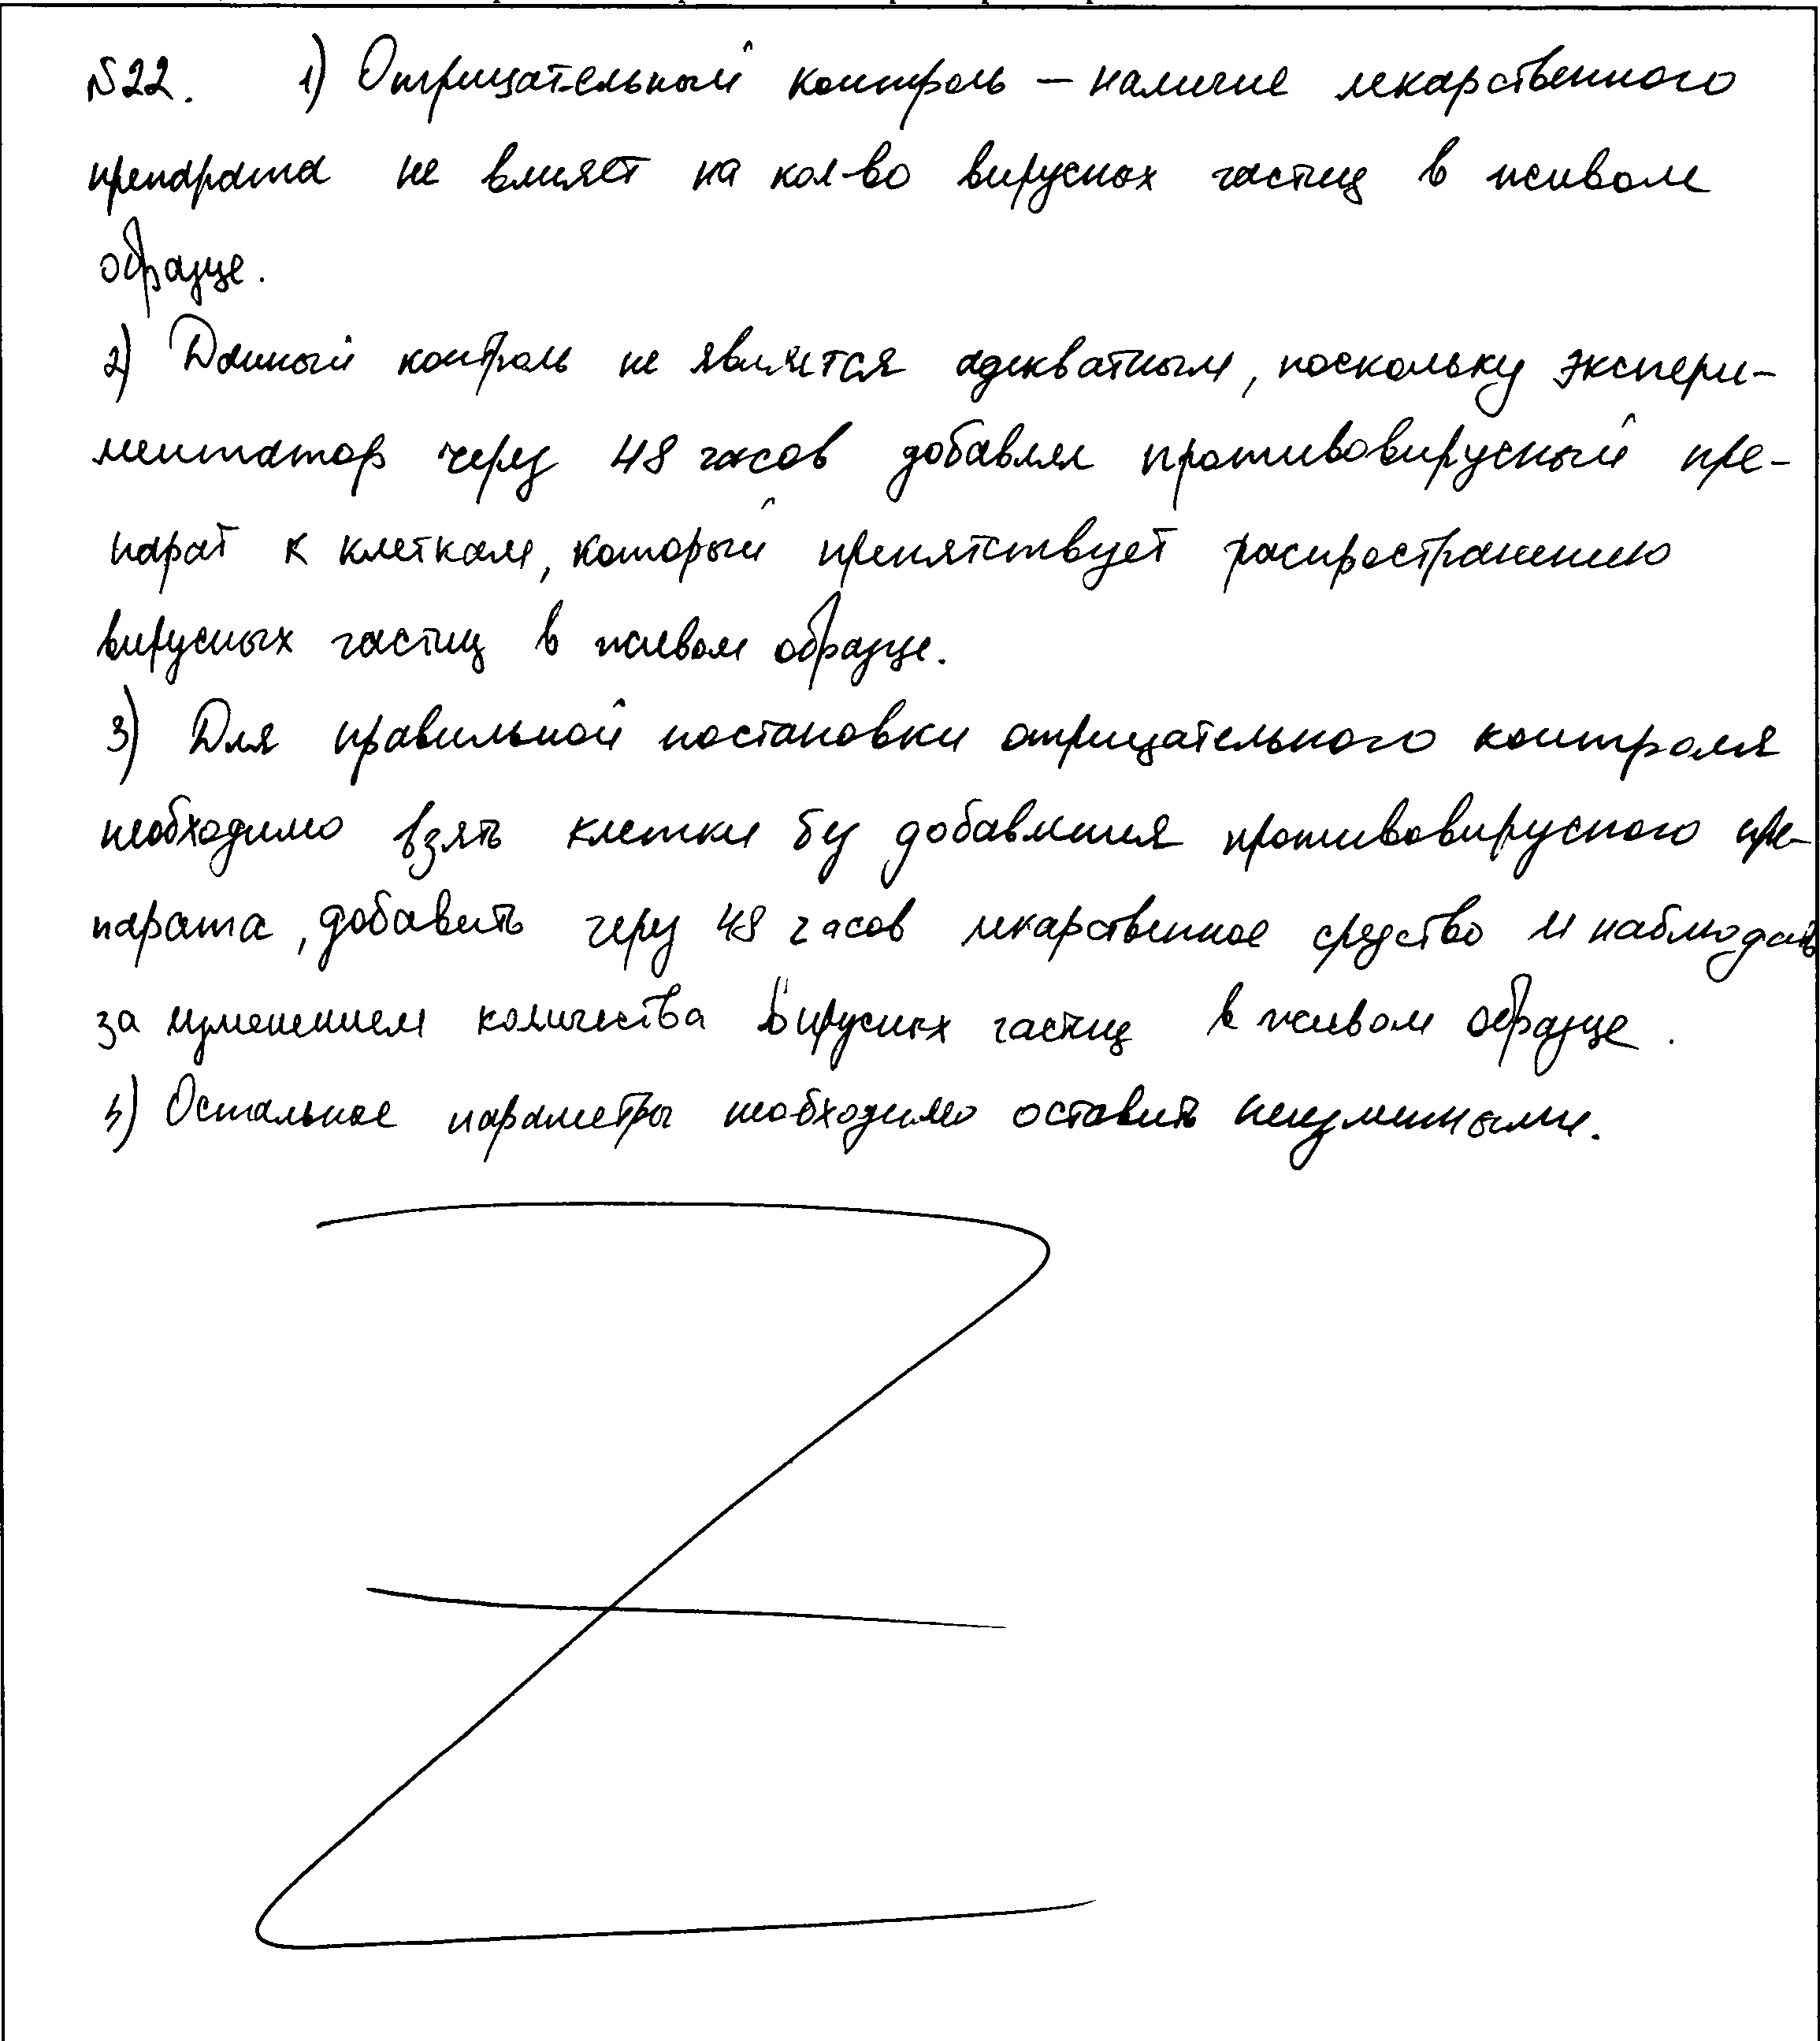 №22. 1) Отрицательный контроль — наличие лекарственного
препарата не влияет на кол-во вирусных частиц в живом
образце.
2) Данный контроль не является адекватным, поскольку экспери-
ментатор через 48 часов добавлял противовирусный пре-
парат к клеткам, который препятствует распространению
вирусных частиц в живом образце.
3) Для правильной постановки отрицательного контроля
необходимо взять клетки без добавления противовирусного пре-
парата, добавить через 48 часов лекарственное средство и наблюдать
за изменением количества вирусных частиц в живом образце.
4) Остальные параметры необходимо оставить неизменными.